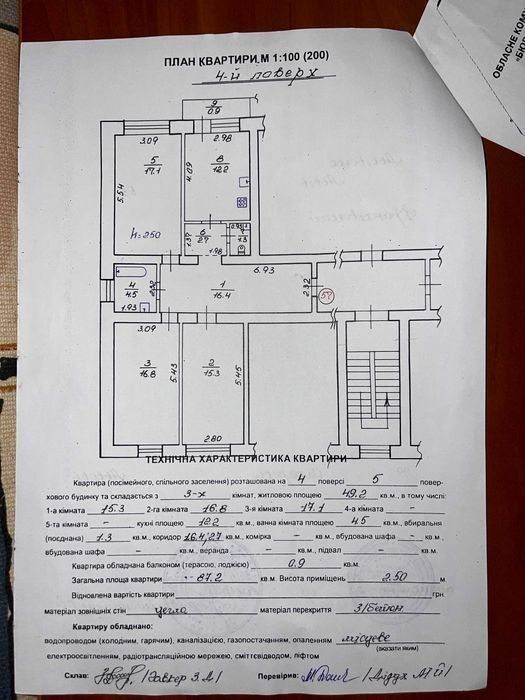 ОБЛАСНЕ КОМУ
«БЮР
ПЛАН КВАРТИРИ.М 1:100 (200)
4-й поверх
9
0.9
3.09
2.98
5
17.1
8
12.2
5.54
4.09
h=2.50
6
2.7
1.37
1.98
0.95
7
1.3
6.93
4
4.5
2.32
1.93
1
16.4
2.32
57
3.09
3
16.8
5.43
2
15.3
5.45
2.80
ТЕХНІЧНА ХАРАКТЕРИСТИКА КВАРТИРИ
Квартира (посімейного, спільного заселення) розташована на 4 поверсі 5 повер-
хового будинку та складається з 3-х кімнат, житловою площею 49.2 кв.м., в тому числі:
1-а кімната 15.3 2-га кімната 16.8 3-я кімната 17.1 4-а кімната -
5-та кімната - кухні площею 12.2 кв.м., ванна кімната площею 4.5 кв.м., вбиральня
(поєднана) 1.3 кв.м., коридор 16.4; 2.7 кв.м., комірка - кв.м., вбудована шафа - кв.м.,
вбудована шафа - кв.м., веранда - кв.м., підвал - кв.м.
Квартира обладнана балконом (терасою, лоджією) 0.9 кв.м.
Загальна площа квартири 87.2 кв.м. Висота приміщень 2.50 м.
Відновлена вартість квартири грн.
матеріал зовнішніх стін цегла матеріал перекриття З/Бетон
Квартиру обладнано:
водопроводом (холодним, гарячим), каналізацією, газопостачанням, опаленням місцеве
(вказати яким)
електроосвітленням, радіотрансляційною мережею, сміттєвідводом, ліфтом
Склав: Перевірив: